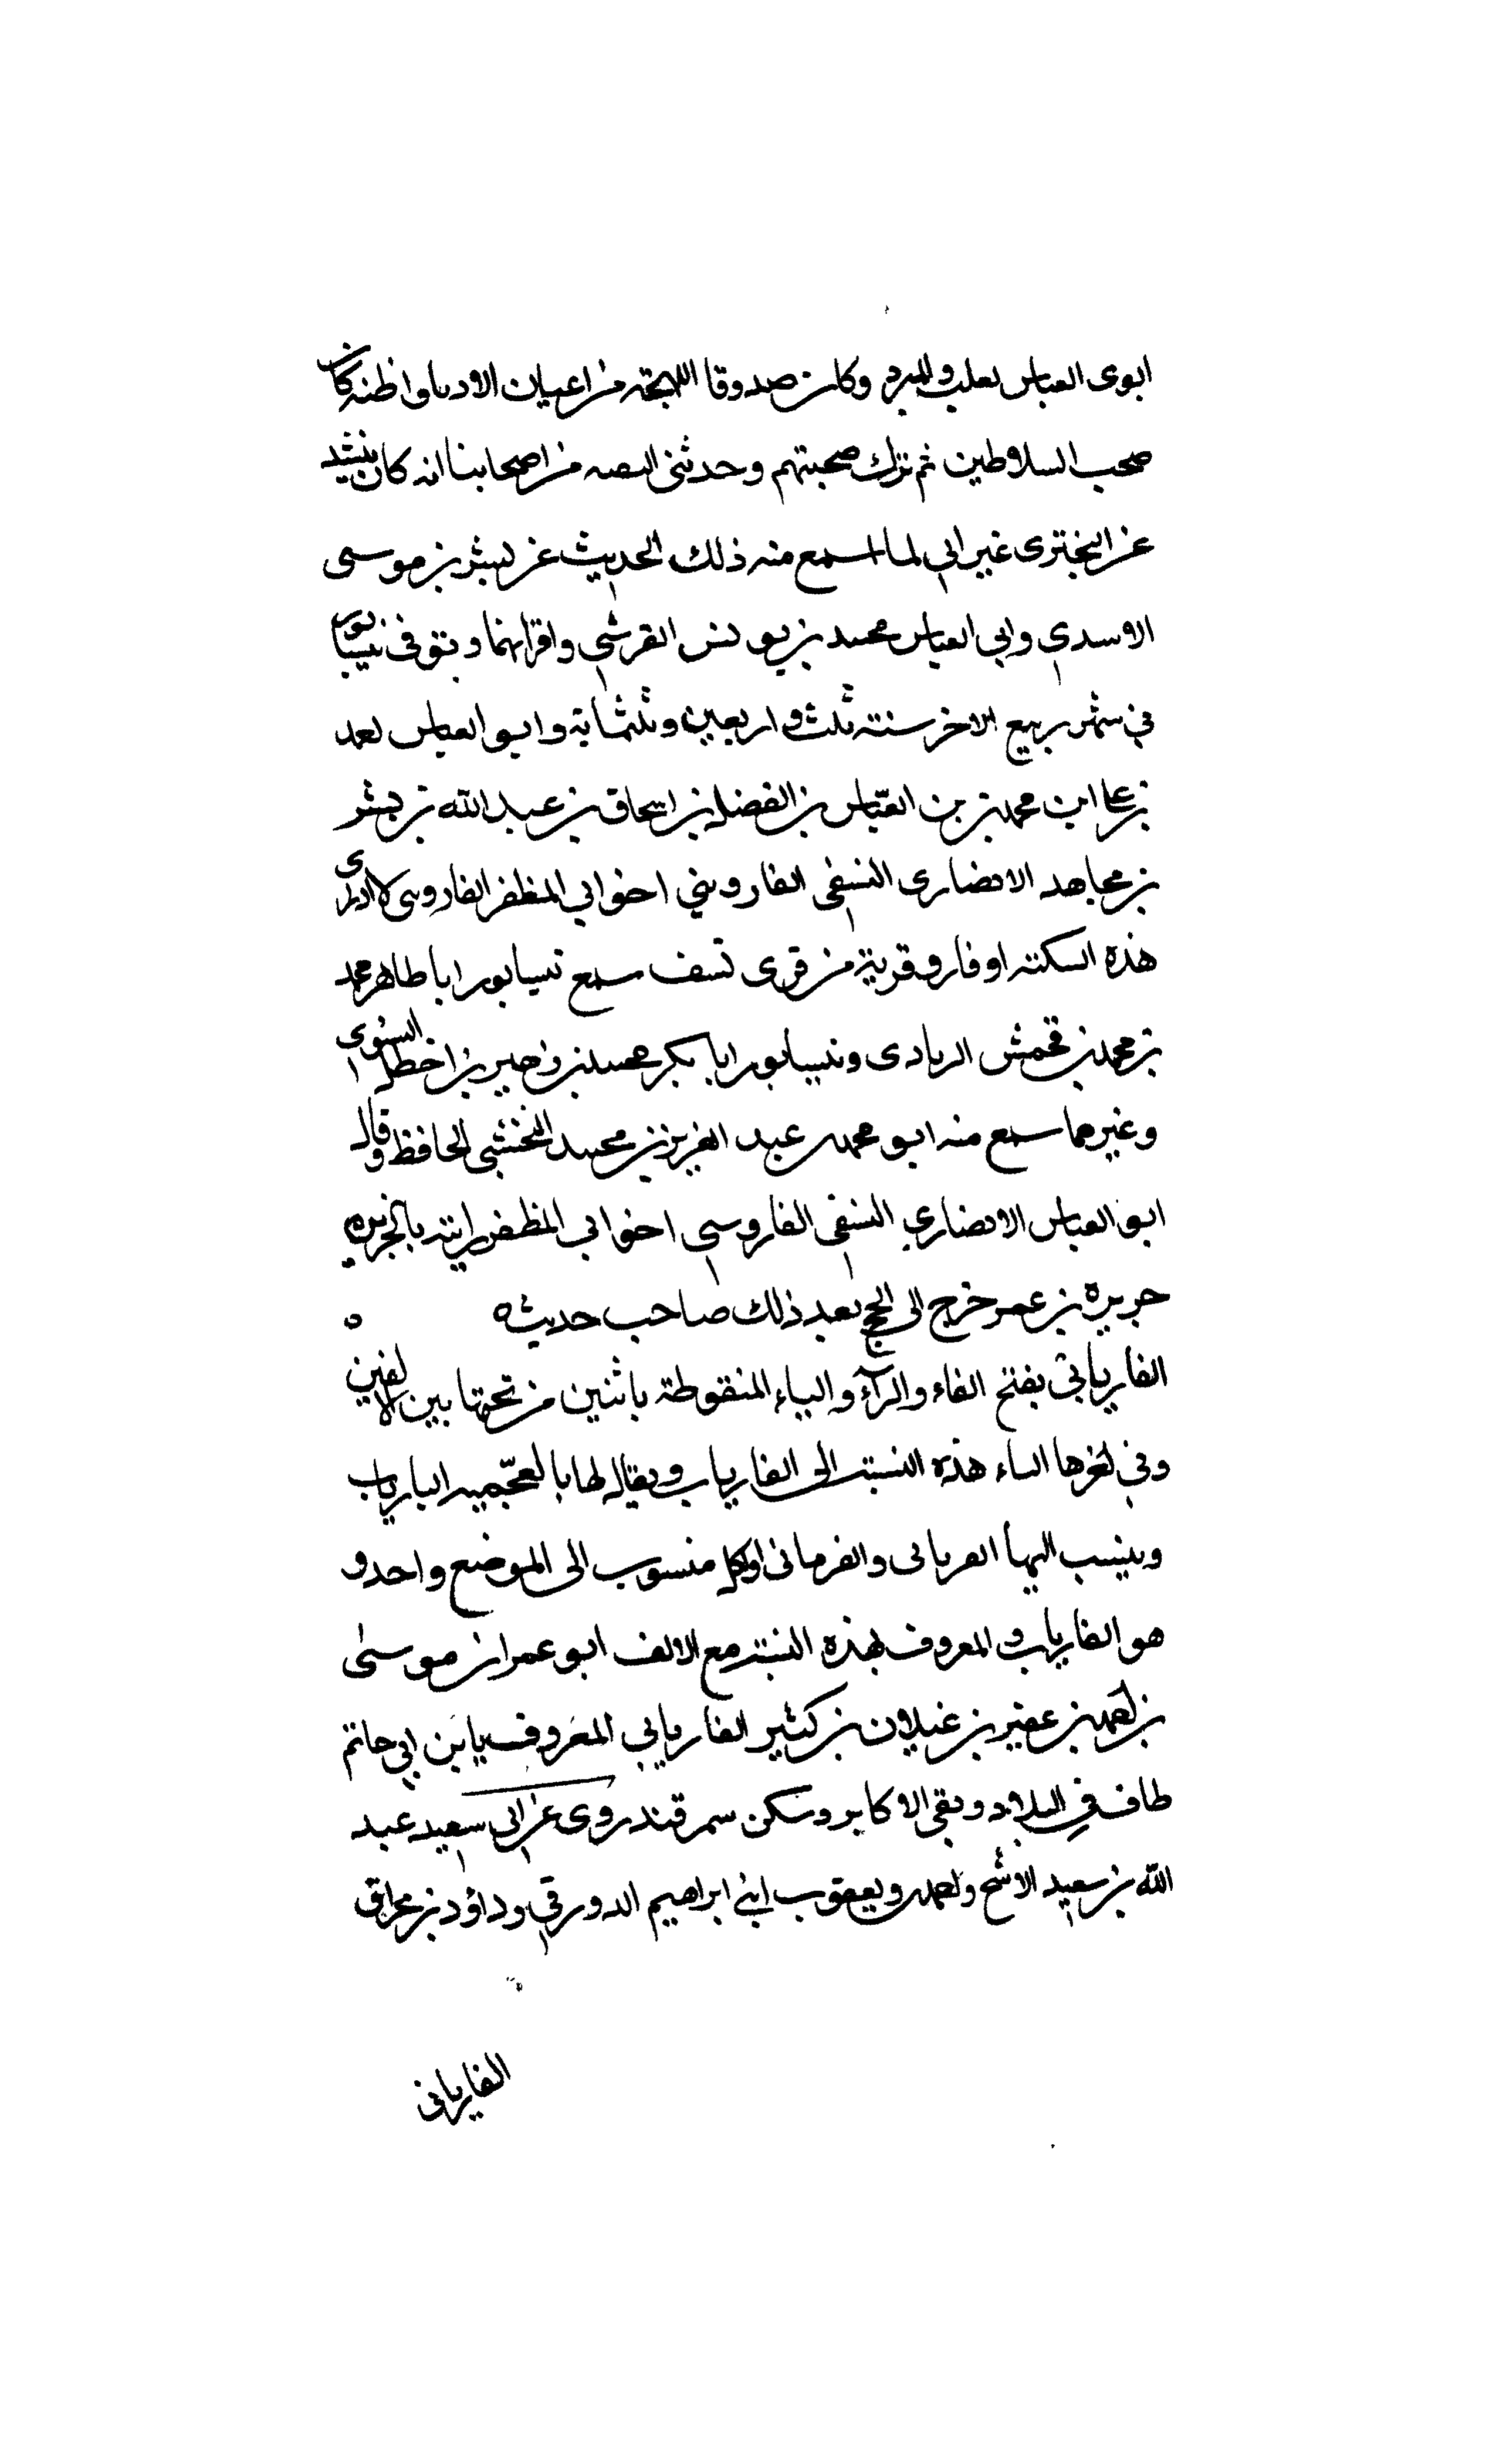 ابوى العباس ثعلب والمبرد وكان صدوقا اللهجة من اعيان الادبا واظنه كان
صحب السلاطين ثم ترك صحبتهم وحدثنى الثقه من اصحابنا انه كان ينشد
عن البخترى غير انى لما اسمع منه ذلك الحديث عن بشر بن موسى
الاسدى وابى العباس محمد بن يونس القرشى واقرانهما وتوفى بنيسابور
فى شهر ربيع الاخر سنة ثلث واربعين وثلثماية وابو العباس احمد
بن على ابن محمد بن العباس بن الفضل بن اسحاق بن عبد الله بن بشر
بن مجاهد الانصارى النسفى الفاروسي اخو ابي المظفر الفاروسى لا ادرى
هذه السكته او فارو قرية من قرى نسف سمع نيسابور ابا طاهر محمد
بن محمد بن محمش الزيادى ونيسابور ابا بكر محمد بن اخطل السنوى
وغيرهما سمع منه ابو محمد عبد العزيز بن محمد النخشبى الحافظ وقال
ابو العباس الانصارى النسفى الفاروسى اخو ابى المظفر رايته بالجزيره
جزيرة بن عمر خرج الى الحج بعد ذلك صاحب حديث ه
الفاريابى بفتح الفاء والرآء والياء المنقوطة باثنين من تحتها بين الالفين
وفى اخرها الباء هذه النسبة الى الفارياب ويقال لها بالعجميه البارياب
وينسب اليها الفريابى والفرمانى اولكل منسوب الى الموضع واحد و
هو الفارياب والمعروف بهذه النسبة مع الالف ابو عمران موسى
بن احمد بن عفير بن غيلان بن كثير الفاريابى المعروف بابن ابى حاتم
طاف فى البلاد وبقى الاكابر وسكن سمرقند روى عن ابى سعيد عبد
الله بن سعيد الاشج واحمد ويعقوب ابنى ابراهيم الدورقى وداؤد بن مخراق
الفاريانى